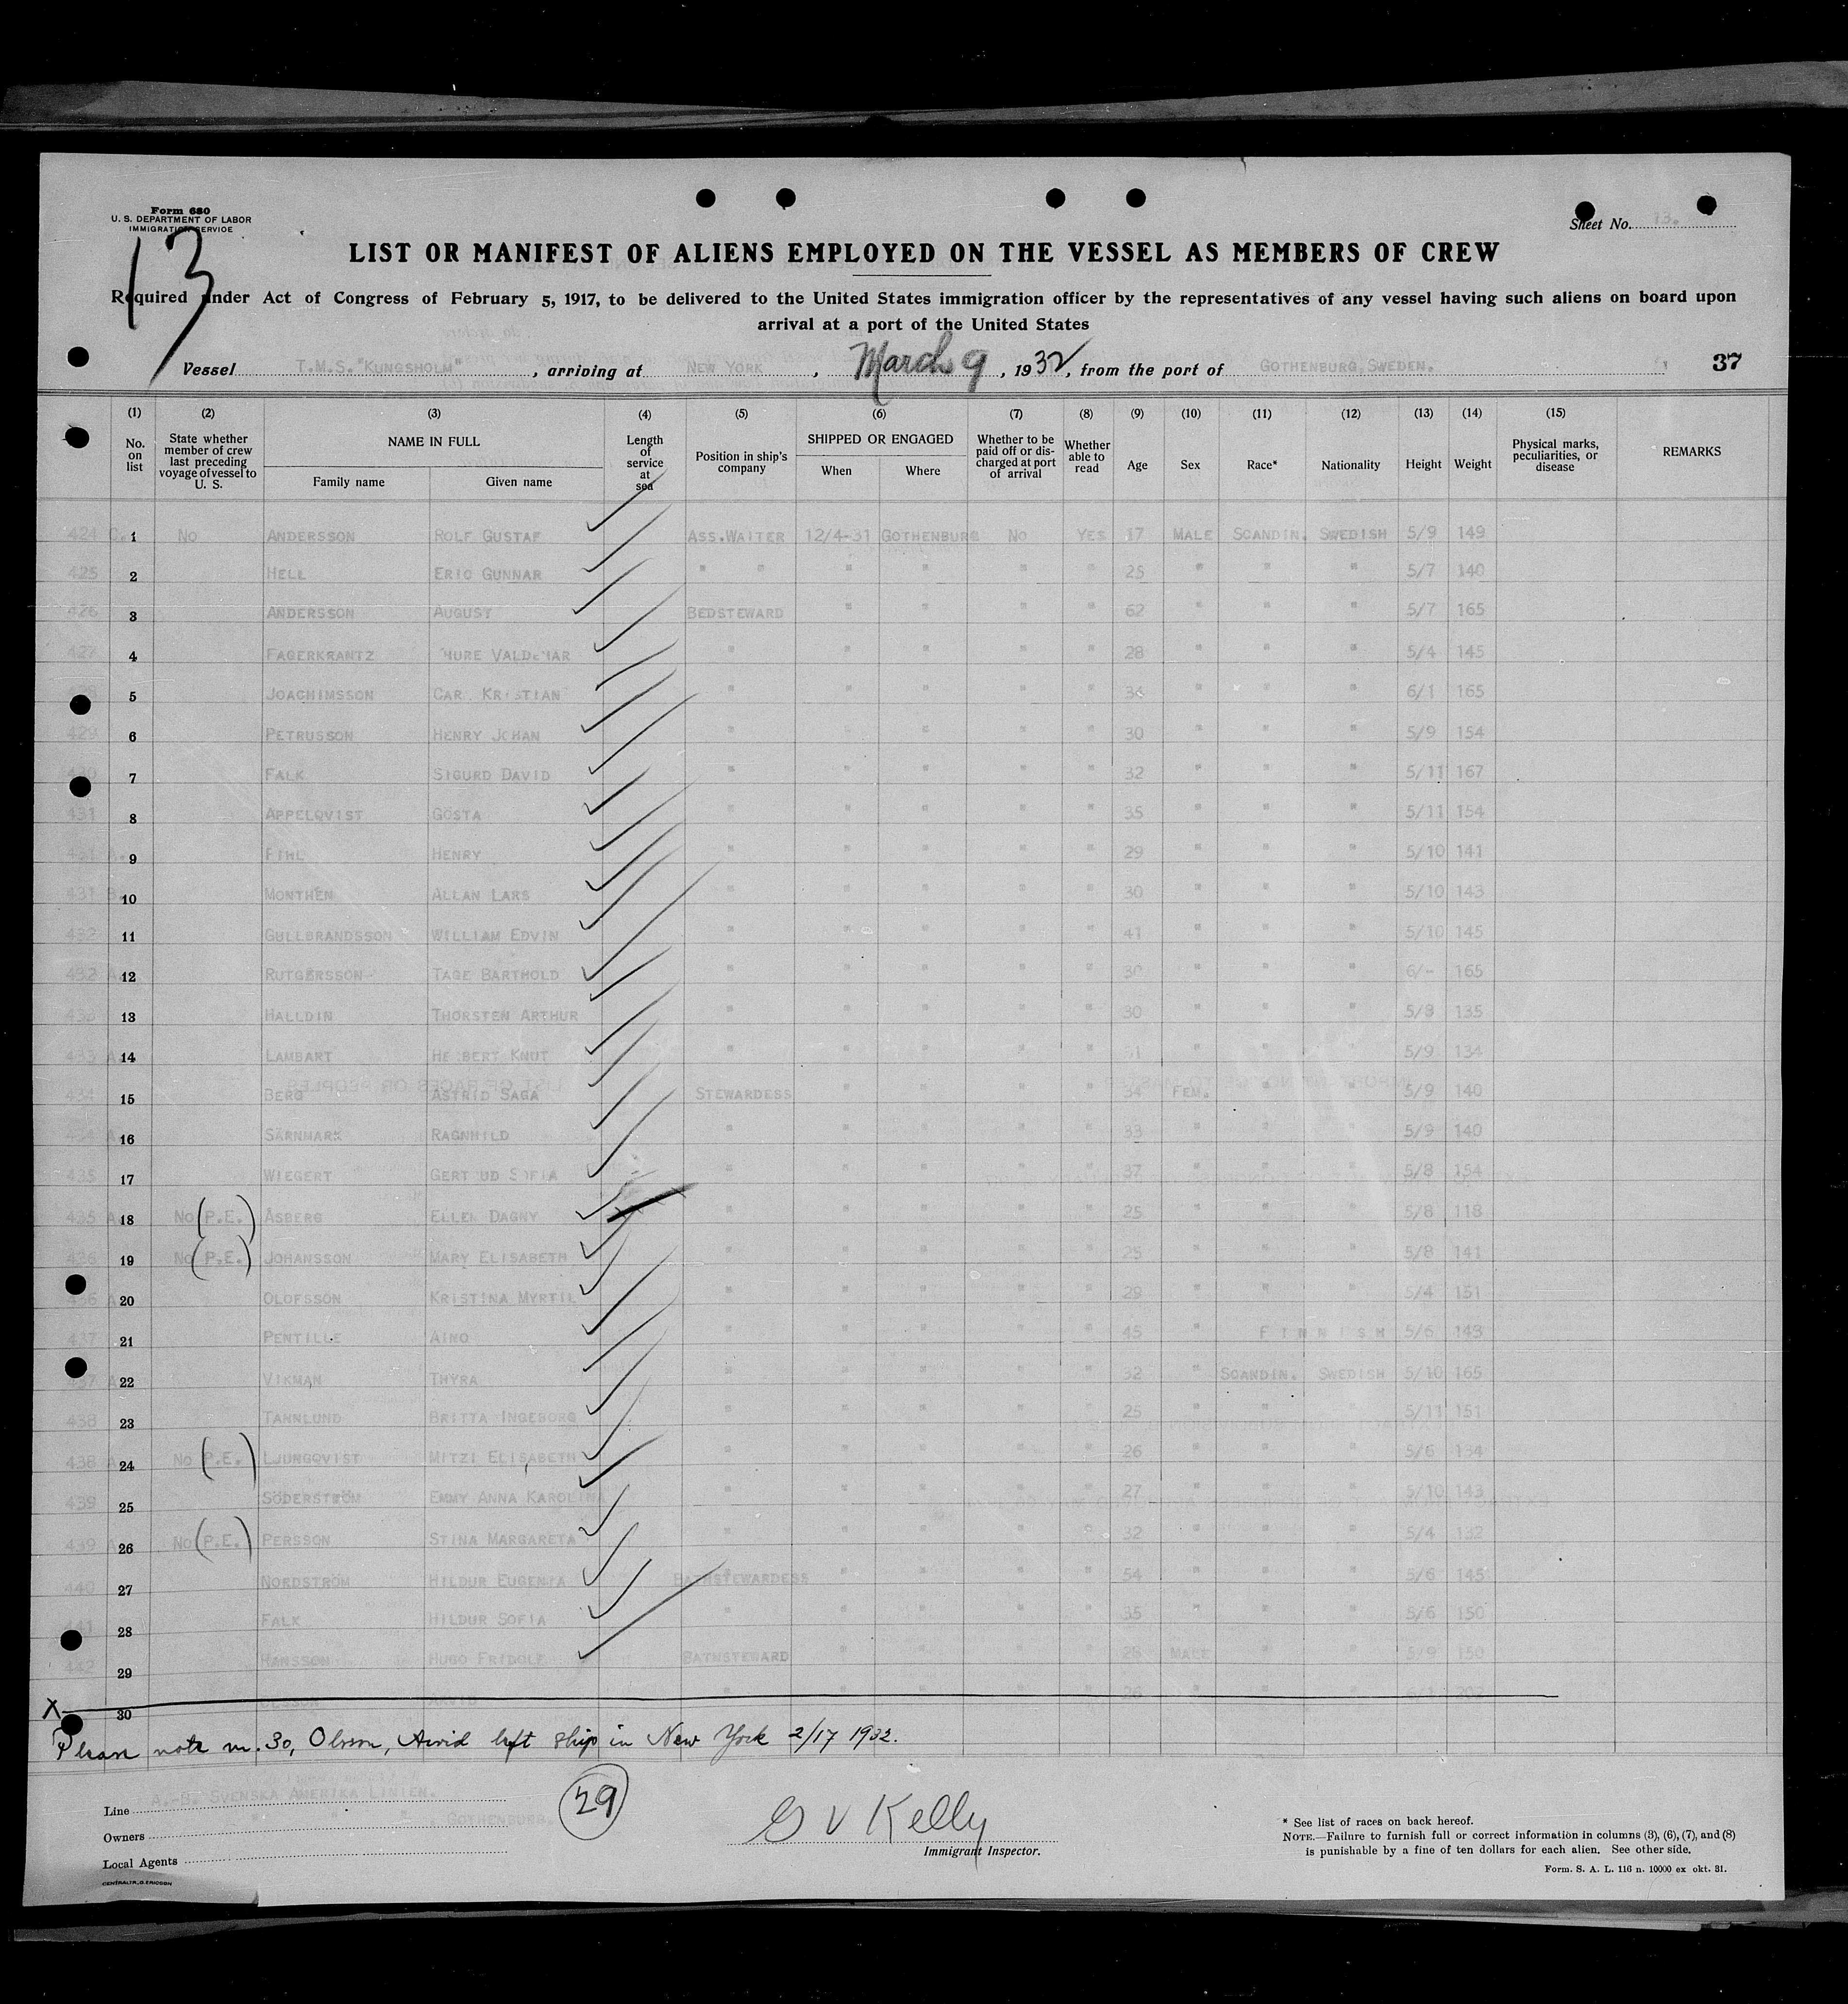 Form 680
U. S. DEPARTMENT OF LABOR
IMMIGRATION SERVICE
13
Sheet No. 13.
LIST OR MANIFEST OF ALIENS EMPLOYED ON THE VESSEL AS MEMBERS OF CREW
Required under Act of Congress of February 5, 1917, to be delivered to the United States immigration officer by the representatives of any vessel having such aliens on board upon
arrival at a port of the United States
Vessel T.M.S. "KUNGSHOLM", arriving at NEW YORK, March 9, 1932, from the port of GOTHENBURG, SWEDEN. 37
(1) (2) (3) (4) (5) (6) (7) (8) (9) (10) (11) (12) (13) (14) (15)
No. on list State whether member of crew last preceding voyage of vessel to U. S. NAME IN FULL Family name Given name Length of service at sea Position in ship's company SHIPPED OR ENGAGED When Where Whether to be paid off or discharged at port of arrival Whether able to read Age Sex Race* Nationality Height Weight Physical marks, peculiarities, or disease REMARKS
424 C. 1 No ANDERSSON ROLF GUSTAF ASS.WAITER 12/4-31 GOTHENBURG No YES 17 MALE SCANDIN. SWEDISH 5/9 149
425 2 HELL ERIC GUNNAR " " " " " " 25 " " " 5/7 140
426 3 ANDERSSON AUGUST BEDSTEWARD " " " " 62 " " " 5/7 165
427 4 FAGERKRANTZ THURE VALDEMAR " " " " " 28 " " " 5/4 145
5 JOACHIMSSON CARL KRISTIAN " " " " " 34 " " " 6/1 165
429 6 PETRUSSON HENRY JOHAN " " " " " 30 " " " 5/9 154
7 FALK SIGURD DAVID " " " " " 32 " " " 5/11 167
431 8 APPELQVIST GÖSTA " " " " " 35 " " " 5/11 154
431 A. 9 FIHL HENRY " " " " " 29 " " " 5/10 141
431 B. 10 MONTHÉN ALLAN LARS " " " " " 30 " " " 5/10 143
432 11 GULLBRANDSSON WILLIAM EDVIN " " " " " 41 " " " 5/10 145
432 A 12 RUTGERSSON TAGE BARTHOLD " " " " " 30 " " " 6/- 165
433 13 HALLDIN THORSTEN ARTHUR " " " " " 30 " " " 5/8 135
433 A 14 LAMBART HERBERT KNUT " " " " " 31 " " " 5/9 134
434 15 BERG ASTRID SAGA STEWARDESS " " " " 34 FEM. " " 5/9 140
434 A 16 SÄRNMARK RAGNHILD " " " " " 33 " " " 5/9 140
435 17 WIEGERT GERTRUD SOFIA " " " " " 37 " " " 5/8 154
435 A 18 No (P.E.) ÅSBERG ELLEN DAGNY " " " " " 25 " " " 5/8 118
436 19 No (P.E.) JOHANSSON MARY ELISABETH " " " " " 25 " " " 5/8 141
436 A 20 OLOFSSON KRISTINA MYRTIL " " " " " 29 " " " 5/4 151
437 21 PENTILLE AINO " " " " " 45 " FINNISH 5/6 143
437 A 22 VIKMAN THYRA " " " " " 32 " SCANDIN. SWEDISH 5/10 165
438 23 TANNLUND BRITTA INGEBORG " " " " " 25 " " " 5/11 151
438 A 24 No (P.E.) LJUNGQVIST MITZI ELISABETH " " " " " 26 " " " 5/6 134
439 25 SÖDERSTRÖM EMMY ANNA KAROLINA " " " " " 27 " " " 5/10 143
439 A 26 No (P.E.) PERSSON STINA MARGARETA " " " " " 32 " " " 5/4 132
440 27 NORDSTRÖM HILDUR EUGENIA BATHSTEWARDESS " " " " 54 " " " 5/6 145
441 28 FALK HILDUR SOFIA " " " " " 35 " " " 5/6 150
442 29 HANSSON HUGO FRIDOLF BATHSTEWARD " " " " MALE " " 5/9 150
X 30 OLSSON ARVID " " " " " 26 " " " 6/1 202
Please note nr. 30, Olsson, Arvid left ship in New York 2/17 1932.
Line A.-B. SVENSKA AMERIKA LINIEN.
Owners " " " , GOTHENBURG.
Local Agents
29
G V Kelly
Immigrant Inspector.
* See list of races on back hereof.
NOTE.—Failure to furnish full or correct information in columns (3), (6), (7), and (8)
is punishable by a fine of ten dollars for each alien. See other side.
Form. S. A. L. 116 n. 10000 ex okt. 31.
CENTRALTR., G. ERICSON